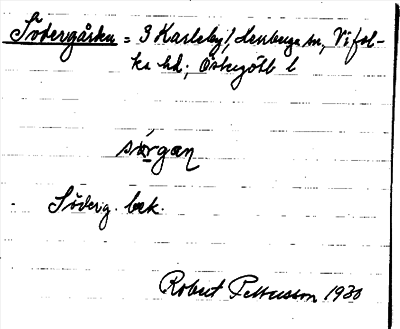 Södergården = 3 Karleby, Herrberga sn, Vifol-
ka hd; Östergötl l
sörgan
Söderg. bek.
Robert Pettersson 1930